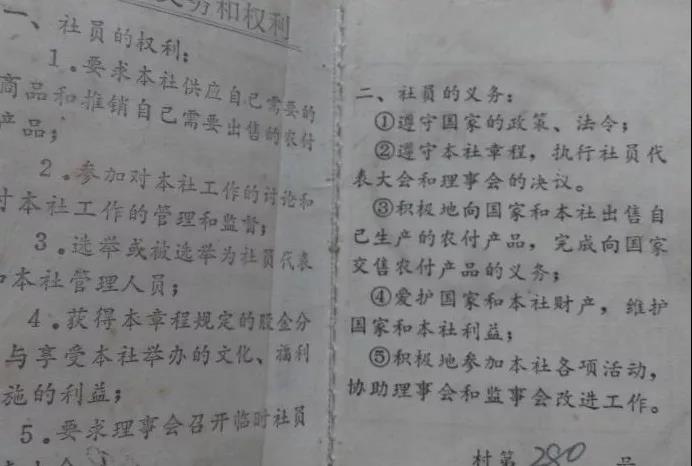 义务和权利
一、社员的权利:
1。要求本社供应自己需要的
商品和推销自己需要出售的农付
产品;
2。参加对本社工作的讨论和
对本社工作的管理和监督;
3。选举或被选举为社员代表
和本社管理人员;
4。获得本章程规定的股金分
与享受本社举办的文化、福利
施的利益;
5。要求理事会召开临时社员
二、社员的义务:
①遵守国家的政策、法令;
②遵守本社章程,执行社员代
表大会和理事会的决议。
③积极地向国家和本社出售自
己生产的农付产品,完成向国家
交售农付产品的义务;
④爱护国家和本社财产,维护
国家和本社利益;
⑤积极地参加本社各项活动,
协助理事会和监事会改进工作。
村第280号